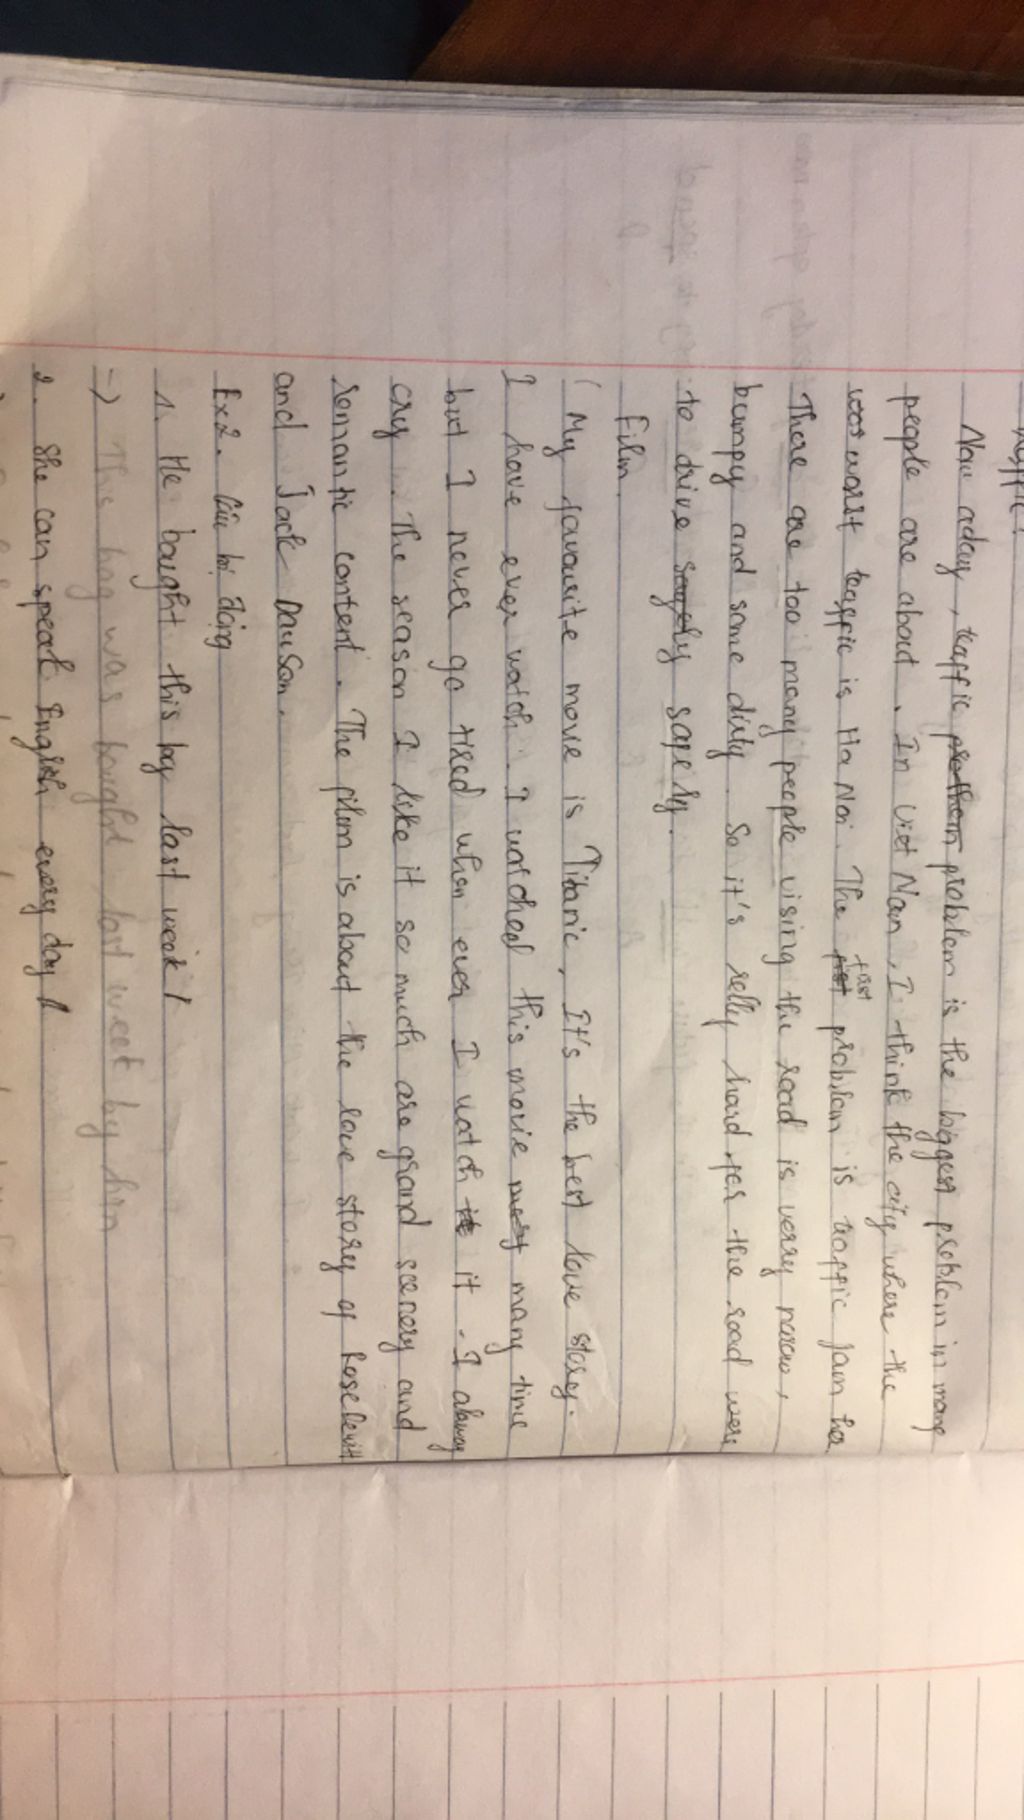 Now aday, traffic problem is the biggest problem in many
people are about. In Viet Nam, I think the city where the
worst traffic is Ha Noi. The first problem is traffic jam
There are too many people using the road is verry narow,
bumpy and some dirty. So it's relly hard for the road were
to drive safely.
Film.
My favourite movie is Titanic. It's the best love story.
I have ever watch. I watched this movie many time
but I never go tired when ever I watch it. I alway
cry. The reason I like it so much are grand scenery and
romantic content. The film is about the love story of Rose
and Jack Dawson.
Ex2. Câu bị động
1. He bought this bag last week/
-> The bag was bought last week by him
2. She can speak English every day/